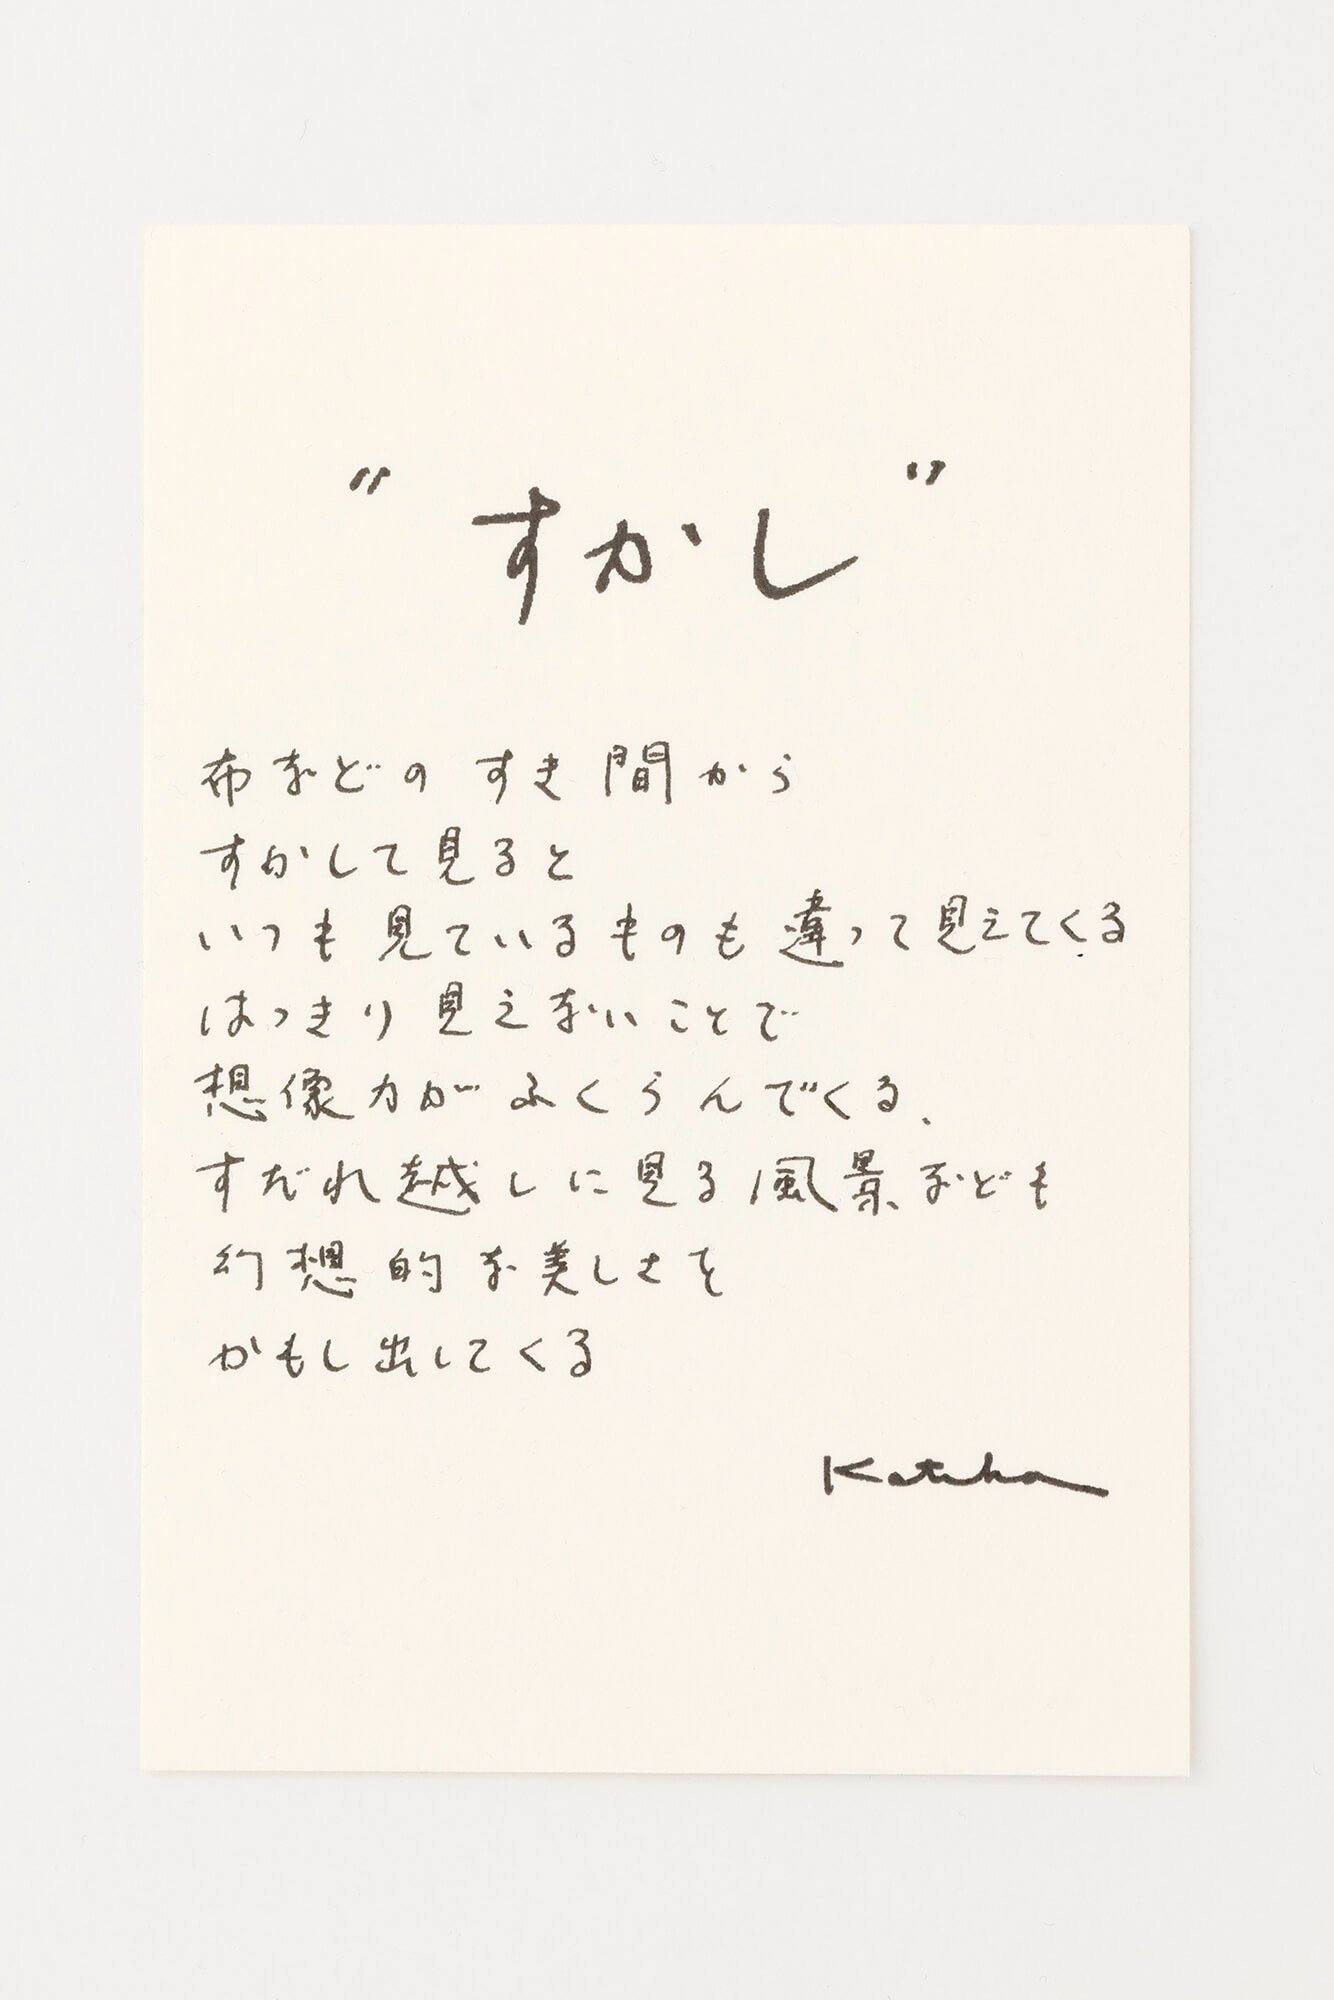 "すかし"
布などのすき間から
すかして見ると
いつも見ているものも違って見えてくる
はっきり見えないことで
想像力がふくらんでくる、
すだれ越しに見る風景なども
幻想的な美しさを
かもし出してくる